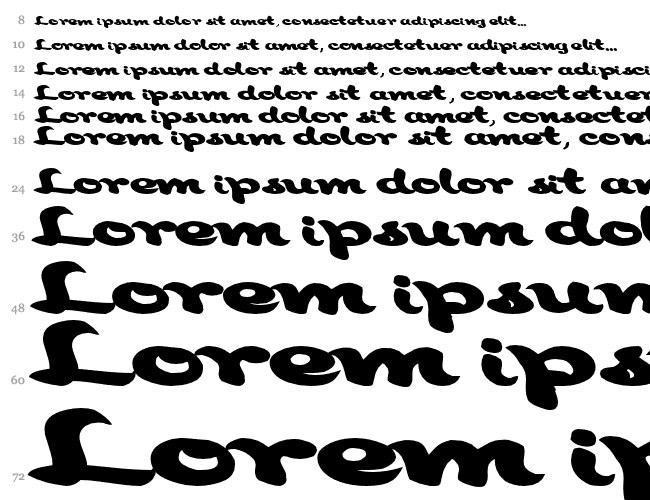 8 Lorem ipsum dolor sit amet, consectetuer adipiscing elit...
10 Lorem ipsum dolor sit amet, consectetuer adipiscing elit...
12 Lorem ipsum dolor sit amet, consectetuer adipisci
14 Lorem ipsum dolor sit amet, consectetuer
16 Lorem ipsum dolor sit amet, consectet
18 Lorem ipsum dolor sit amet, cons
24 Lorem ipsum dolor sit am
36 Lorem ipsum dol
48 Lorem ipsum
60 Lorem ips
72 Lorem ip